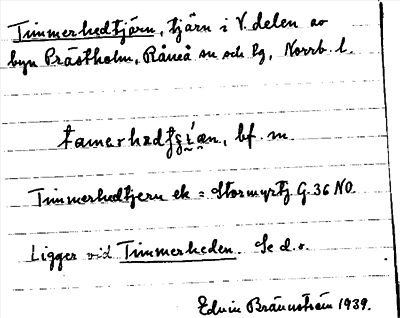 Timmerhedtjärn, tjärn i V. delen av
byn Prästholm, Råneå sn och tg, Norrb. l.
bf. m.
Timmerhedtjern ek = Stormyrtj G. 36 NO.
Ligger vid Timmerheden. Se d. o.
Edvin Brännström 1939.